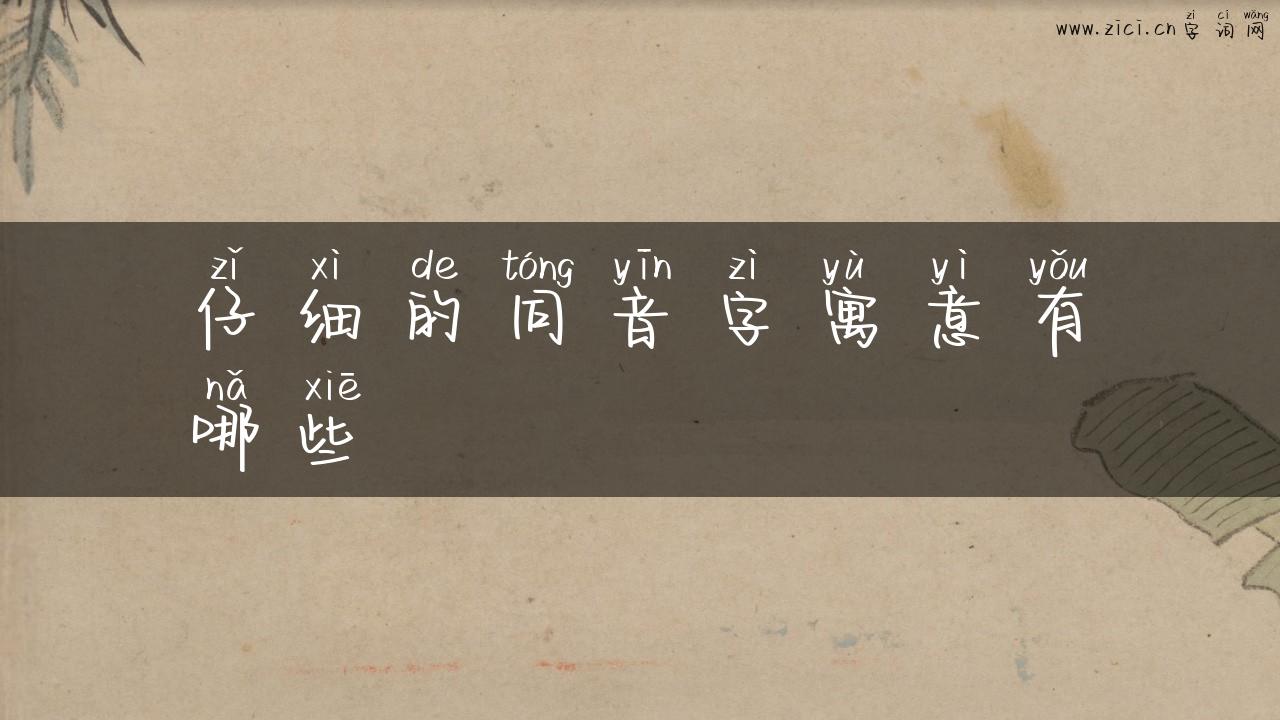 zì cí wǎng
www.zici.cn 字 词 网
zǐ xì de tóng yīn zì yù yì yǒu
仔 细 的 同 音 字 寓 意 有
nǎ xiē
哪 些